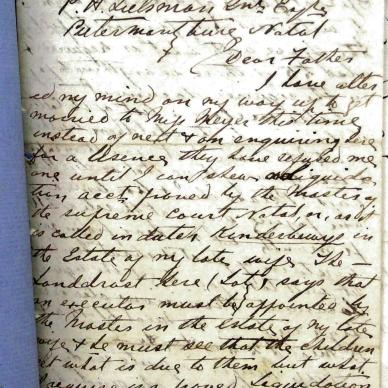 P. H.
Pietermaritzburg Natal
Dear Father
I have alter
ed my mind on my way up to get
married to Miss Meyer this time
instead of next & on enquiring here
for a lisence they have refused me
one until I can shew a liquida
tion acct proved by the Master of
the supreme Court Natal, or, as it
is called in dutch Kinderbewys in
the Estate of my late wife. The
Landdrost here (Lots) says that
an executor must be appointed by
the Master in the Estate of my late
wife & he must see that the children
get what is due to them but what